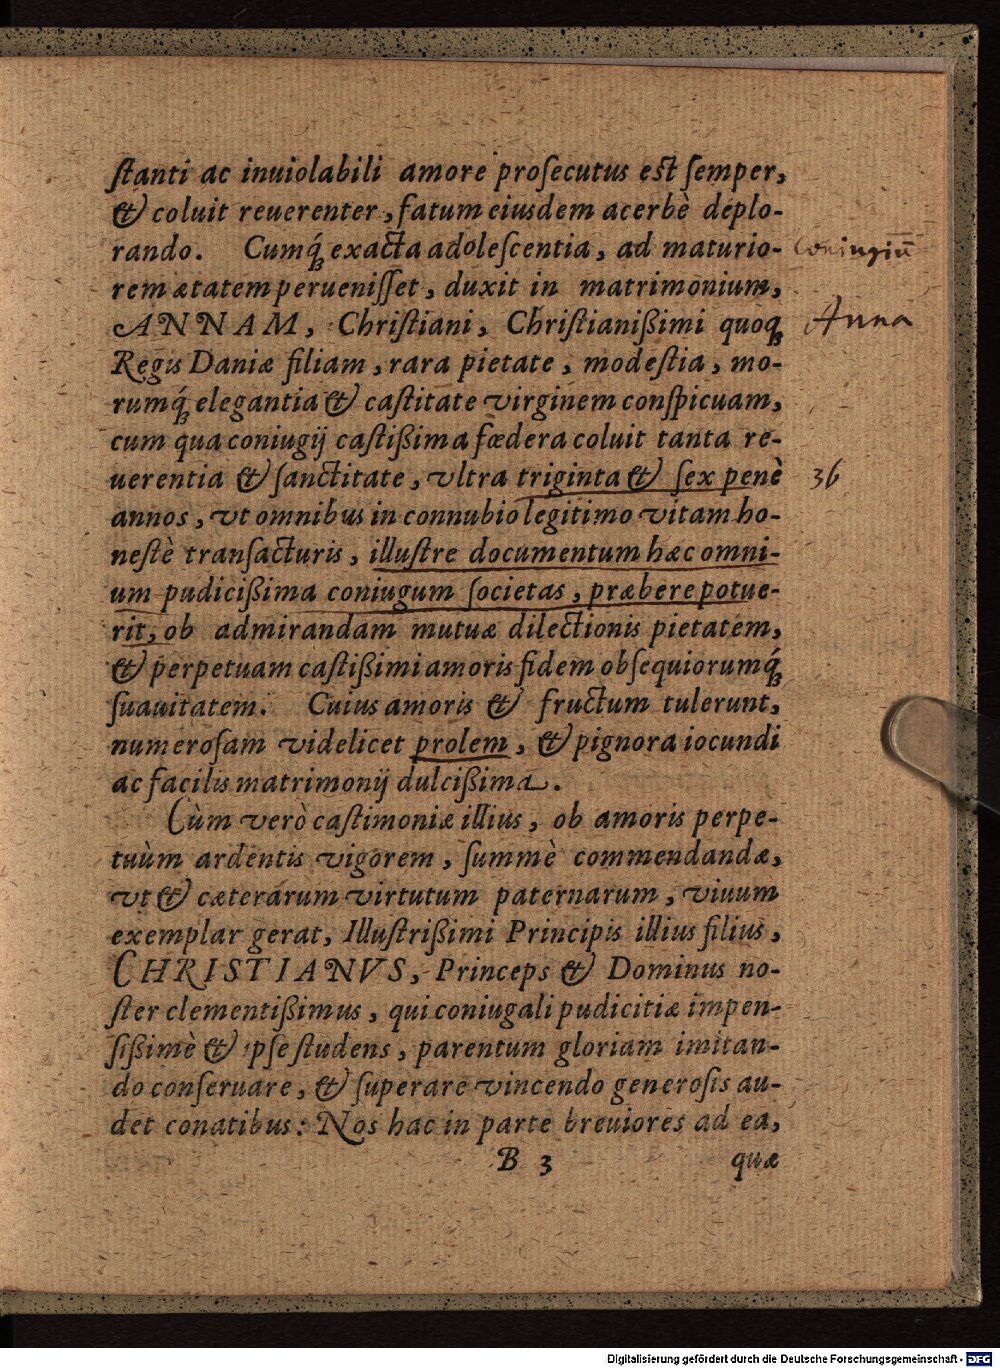 ſtanti ac inuiolabili amore proſecutus est ſemper,
& coluit reuerenter, fatum eiusdem acerbè deplo-
rando. Cumq́; exacta adoleſcentia, ad maturio-
coniugiū
rem ætatem perueniſſet, duxit in matrimonium,
ANNAM, Chriſtiani, Chriſtianißimi quoq;
Anna
Regis Daniæ filiam, rara pietate, modeſtia, mo-
rumq́; elegantia & caſtitate virginem conſpicuam,
cum qua coniugij caſtißima fœdera coluit tanta re-
uerentia & ſanctitate, vltra triginta & ſex penè
36
annos, vt omnibus in connubio legitimo vitam ho-
neſtè tranſacturis, illuſtre documentum hæc omni-
um pudicißima coniugum ſocietas, præbere potue-
rit, ob admirandam mutuæ dilectionis pietatem,
& perpetuam caſtißimi amoris fidem obſequiorumq́;
ſuauitatem. Cuius amoris & fructum tulerunt,
numeroſam videlicet prolem, & pignora iocundi
ac facilis matrimonij dulcißima.
Cùm verò caſtimoniæ illius, ob amoris perpe-
tuùm ardentis vigorem, ſummè commendandæ,
vt & cæterarum virtutum paternarum, viuum
exemplar gerat, Illuſtrißimi Principis illius filius,
CHRISTIANVS, Princeps & Dominus no-
ſter clementißimus, qui coniugali pudicitiæ impen-
ſißimè & ipſe ſtudens, parentum gloriam imitan-
do conſeruare, & ſuperare vincendo generoſis au-
det conatibus: Nos hac in parte breuiores ad ea,
B 3 quæ
Digitalisierung gefördert durch die Deutsche Forschungsgemeinschaft - DFG